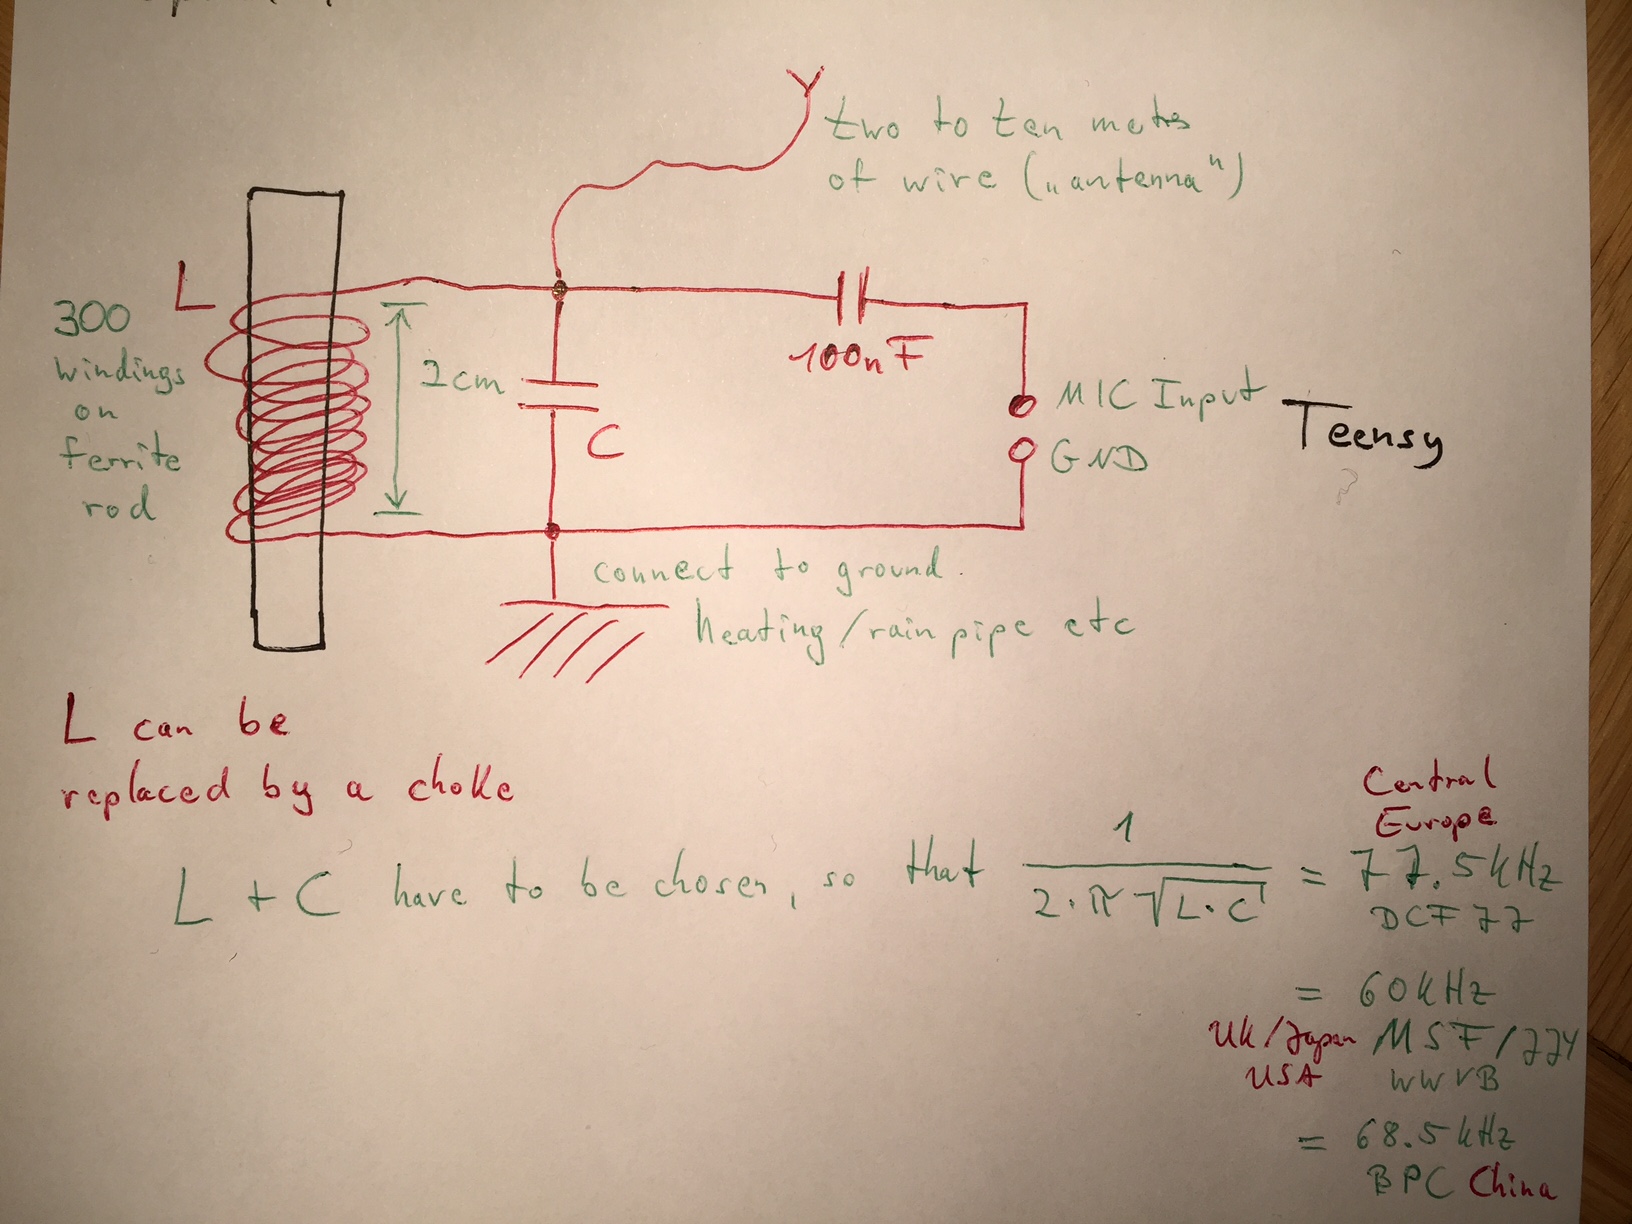 two to ten meters
of wire („antenna")
L
300
windings
on
ferrite
rod
2cm
C
100nF
MIC Input
GND
Teensy
connect to ground.
heating/rain pipe etc
L can be
replaced by a choke
L + C have to be chosen, so that 1 / 2·π √L·C = 77.5kHz
Central
Europe
DCF 77
= 60kHz
UK/Japan MSF/JJY
USA WWVB
= 68.5kHz
BPC China